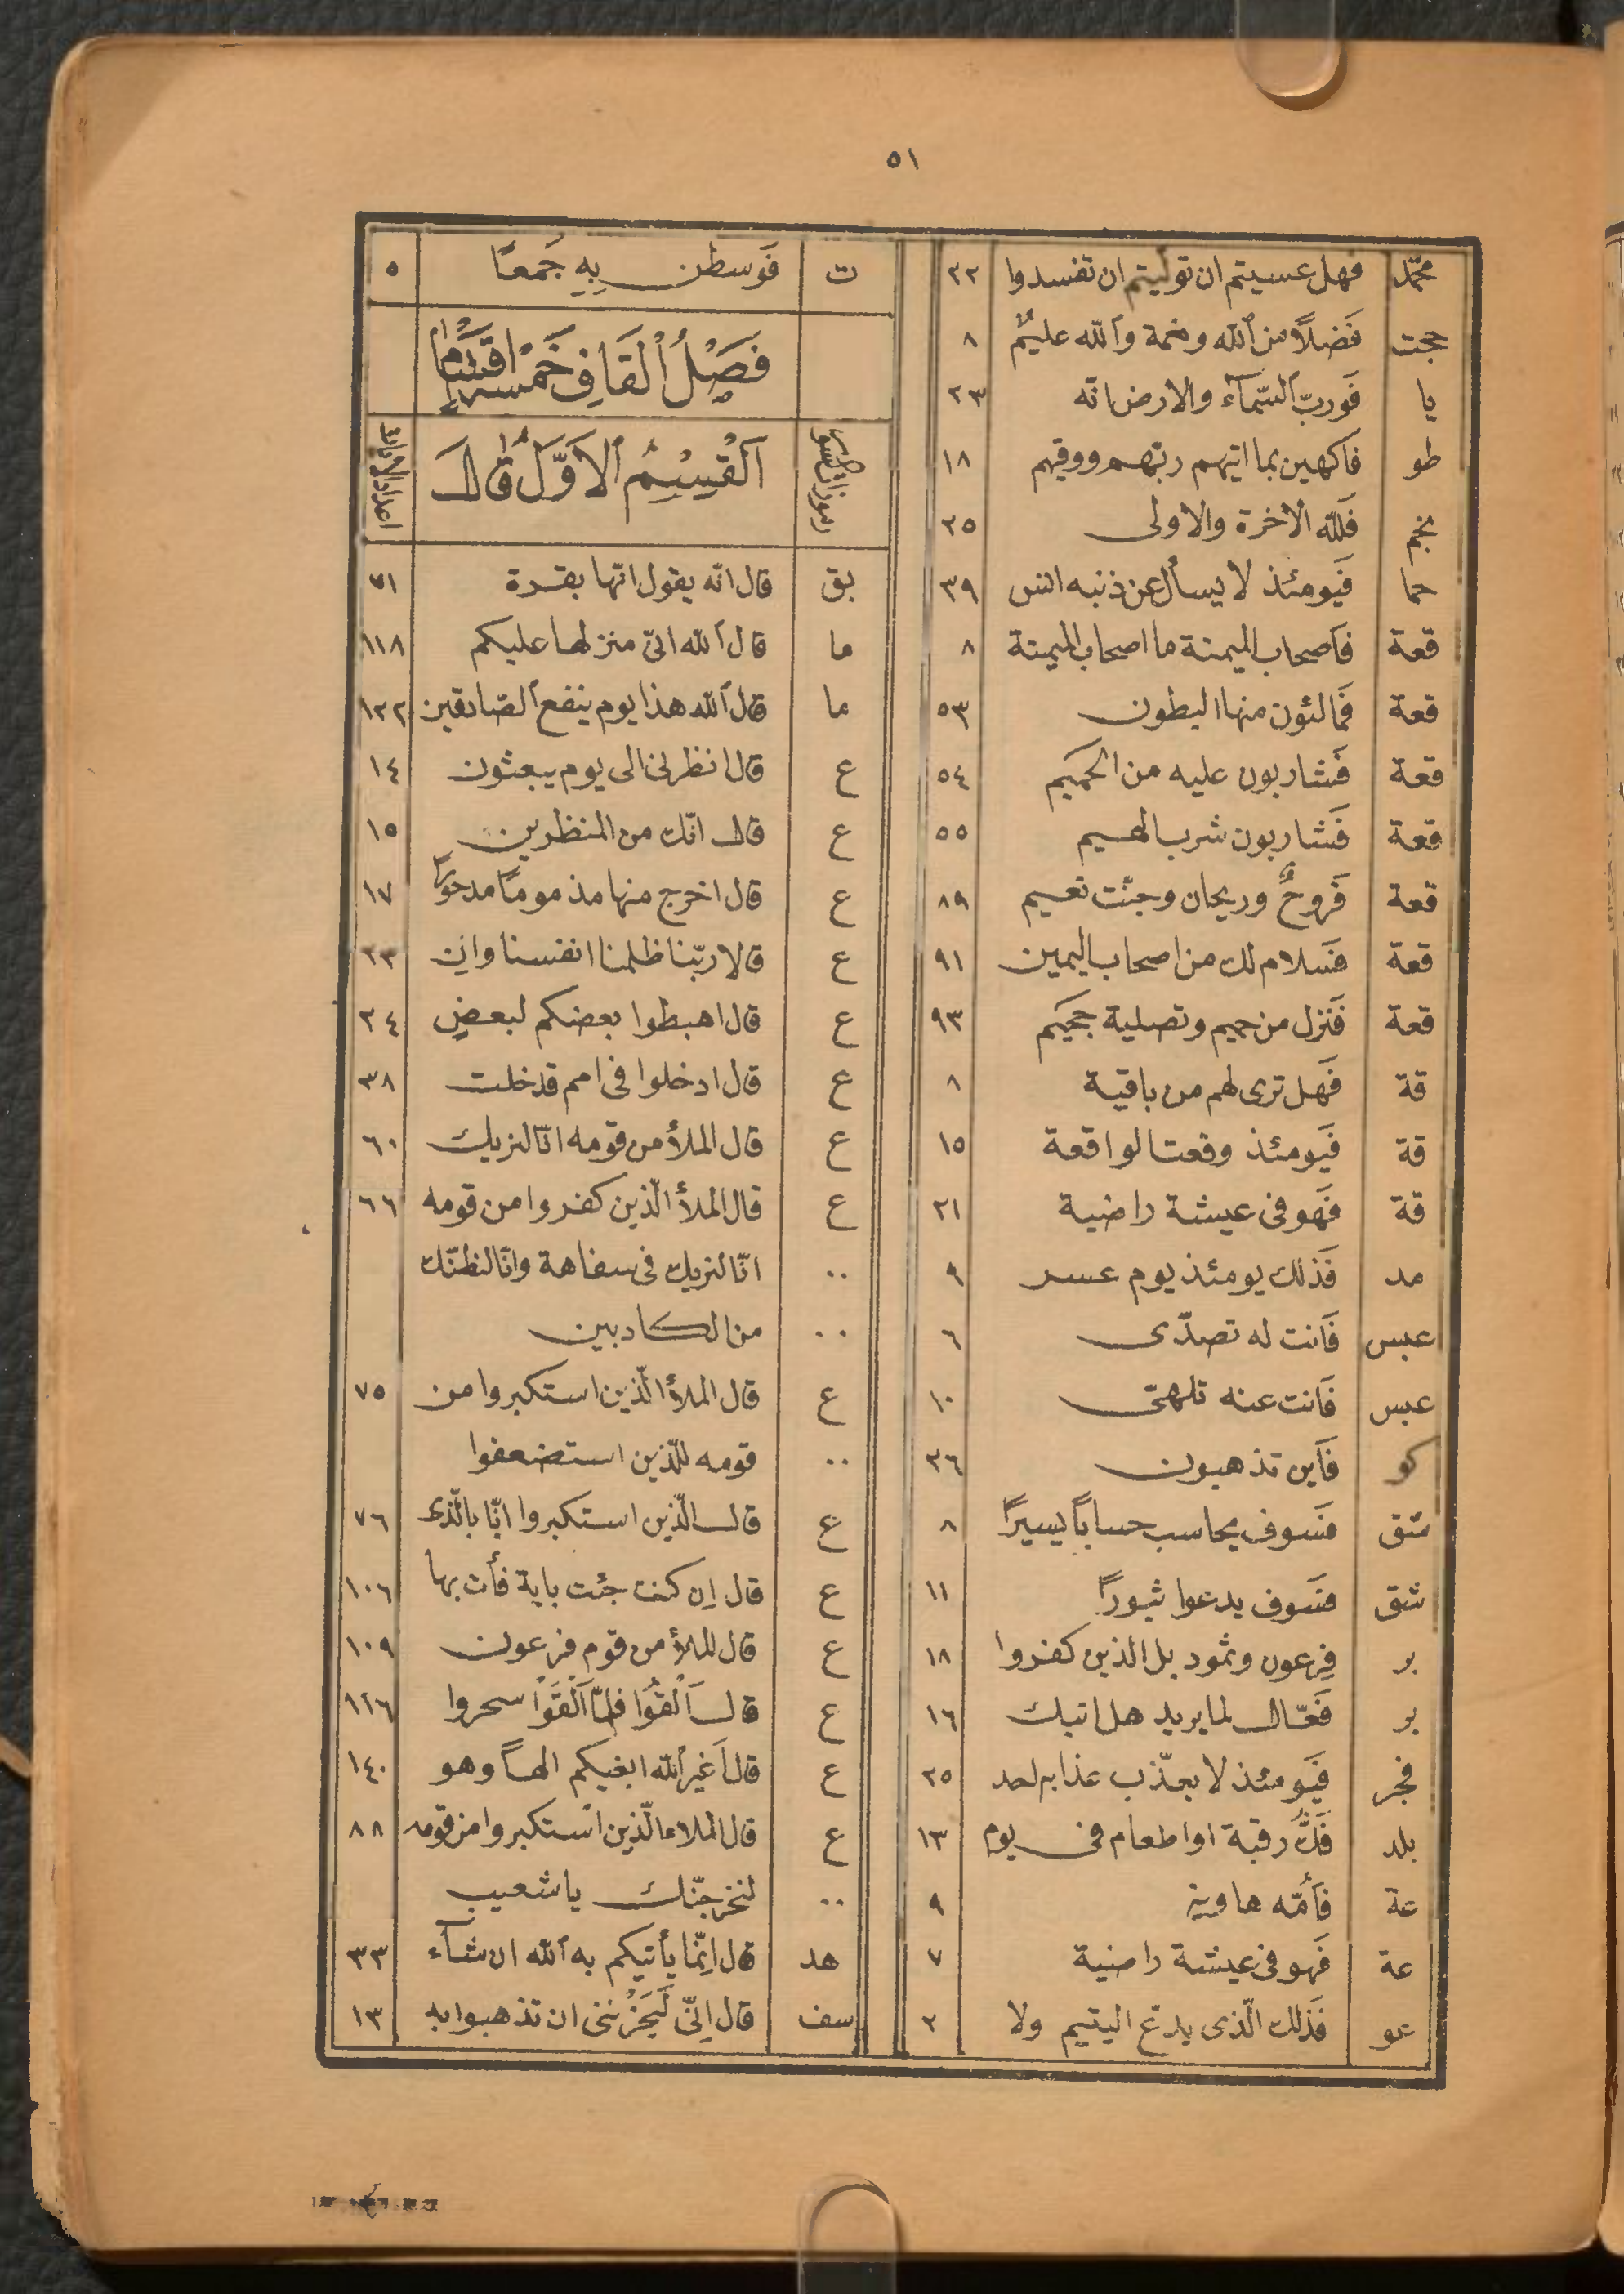 ٥١
محمّد فهل عسيتم ان توليتم ان تفسدوا ٢٢
حجت فَضلاً من ٱلله ونعمة وٱلله عليمٌ ٨
يا فَوربّ ٱلسّمآء والارض انّه ٢٣
طو فاكهين بما اتيهم ربّهم ووقيهم ١٨
نجم فَللّه الاخرة والاولى ٢٥
حما فَيومئذ لا يسأل عن ذنبه انس ٣٩
قعة فَاصحاب الميمنة ما اصحاب الميمنة ٨
قعة فَمالئون منها البطون ٥٣
قعة فَشاربون عليه من الحميم ٥٤
قعة فَشاربون شرب الهيم ٥٥
قعة فَروحٌ وريحان وجنّت نعيم ٨٩
قعة فَسلام لك من اصحاب اليمين ٩١
قعة فَنزل من حميم وتصلية جحيم ٩٣
قة فَهل ترى لهم من باقية ٨
قة فَيومئذ وقعت الواقعة ١٥
قة فَهو فى عيشة راضية ٢١
مد فَذلك يومئذ يوم عسر ٩
عبس فَانت له تصدّى ٦
عبس فَانت عنه تلهّى ١٠
كو فَاين تذهبون ٢٦
شق فَسوف يحاسب حساباً يسيراً ٨
شق فَسوف يدعوا ثبوراً ١١
بر فِرعون وثمود بل الذين كفروا ١٨
بر فَعّال لما يريد هل اتيك ١٦
فجر فَيومئذ لا يعذّب عذابه احد ٢٥
بلد فَكُّ رقبة او اطعام فى يوم ١٣
عة فَاُمّه هاوية ٩
عة فَهو فى عيشة راضية ٧
عو فَذلك الّذى يدعّ اليتيم ولا ٢
ت فَوسطن بِهِ جَمعًا ٥
فَصْلُ ٱلْقَافِ خَمْسَة اَقْسَامٍ
رموزات سور اَلْقِسِمُ ٱلاَوَّلُ قالَ اعداد الآيات
بق قال انّه يقول انّها بقرة ٧١
ما قال ٱلله انّى منزلها عليكم ١١٨
ما قال ٱلله هذا يوم ينفع ٱلصّادقين ١٢٢
ع قال انظرنى الى يوم يبعثون ١٤
ع قال انّك من المنظرين ١٥
ع قال اخرج منها مذموماً مدحوراً ١٧
ع قالا ربّنا ظلمنا انفسنا وان ٢٣
ع قال اهبطوا بعضكم لبعضٍ ٢٤
ع قال ادخلوا فى امم قد خلت ٣٨
ع قال الملأ من قومه انّا لنريك ٦٠
ع قال الملأ الّذين كفروا من قومه ٦٦
.. انّا لنريك فى سفاهة وانّا لنظنّك
.. من الكاذبين
ع قال الملأ الّذين استكبروا من ٧٥
.. قومه للّذين استضعفوا
ع قال الّذين استكبروا انّا بالّذى ٧٦
ع قال اِن كنت جئت باية فأت بها ١٠٦
ع قال الملأ من قوم فرعون ١٠٩
ع قال اَلْقُوا فلمّا اَلْقَوْا سحروا ١١٦
ع قال اَغير ٱلله ابغيكم الهاً وهو ١٤٠
ع قال الملاء الّذين استكبروا من قومه ٨٨
.. لنخرجنّك يا شعيب
هد قال اِنّما يأتيكم به ٱلله ان شآء ٣٣
سف قال اِنّى لَيَحْزُننى ان تذهبوا به ١٣